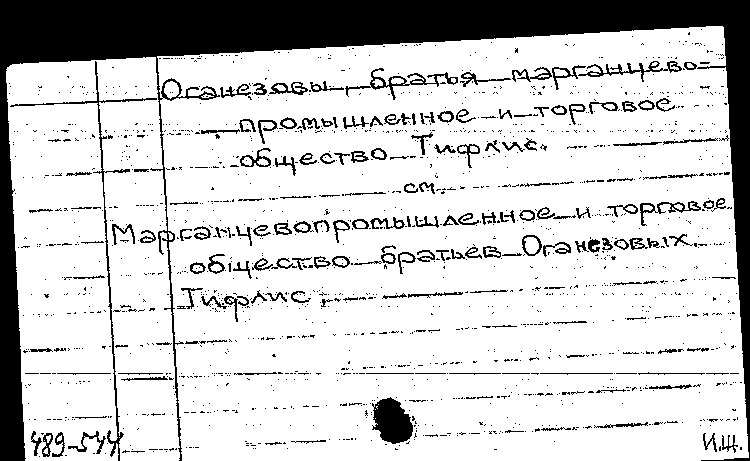 Оганезовы, братья марганцево=
промышленное и торговое
общество Тифлис.
см.
Марганцевопромышленное и торговое
общество братьев Оганезовых.
Тифлис.
489-544
И.Щ.